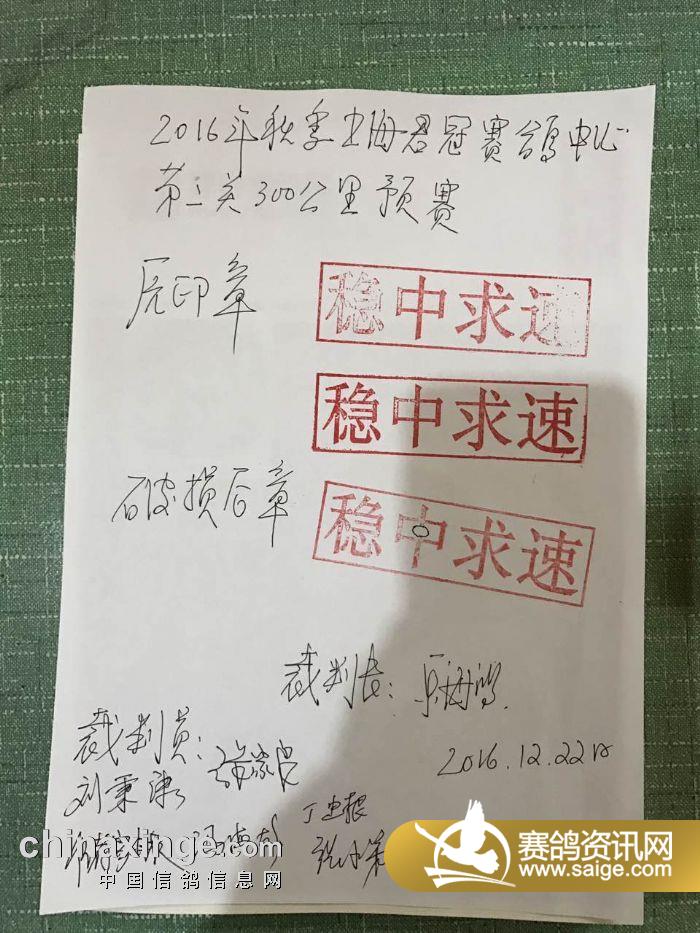 2016年秋季上海君冠赛鸽中心
第二关300公里预赛
原印章
稳中求速
稳中求速
破损后章
稳中求速
裁判长:
裁判员:
2016.12.22日
刘秉康
chinaxinge.com
中国信鸽信息网
赛鸽资讯网
www.saige.com